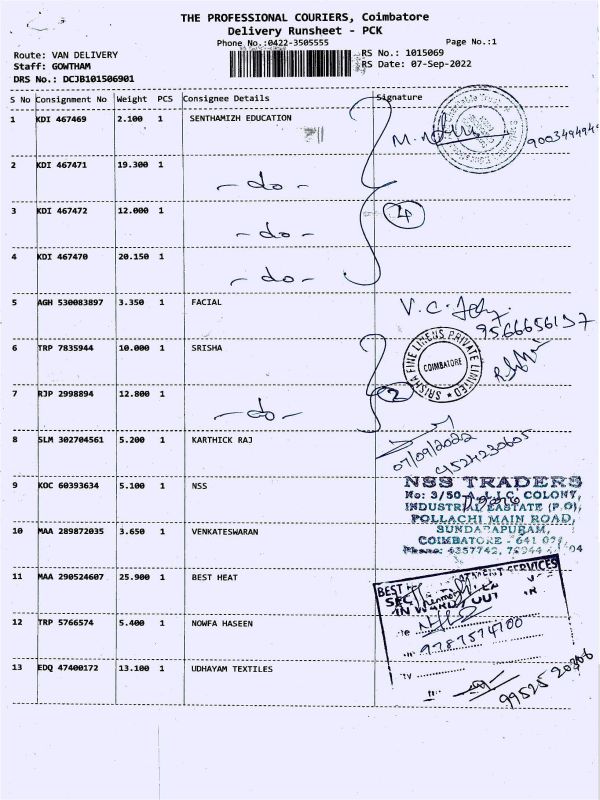 THE PROFESSIONAL COURIERS, Coimbatore
Delivery Runsheet - PCK
Phone No.:0422-3505555
Page No.:1
Route: VAN DELIVERY
RS No.: 1015069
Staff: GOWTHAM
RS Date: 07-Sep-2022
DRS No.: DCJB101506901
S No Consignment No Weight PCS Consignee Details Signature
1 KDI 467469 2.100 1 SENTHAMIZH EDUCATION
2 KDI 467471 19.300 1 - do -
3 KDI 467472 12.000 1 - do -
4
4 KDI 467470 20.150 1 - do -
5 AGH 530083897 3.350 1 FACIAL
9566656137
6 TRP 7835944 10.000 1 SRISHA
SRISHA FINE LINENS PRIVATE LIMITED
COIMBATORE
7 RJP 2998894 12.800 1 - do -
2
8 SLM 302704561 5.200 1 KARTHICK RAJ
07/09/2022
9524230605
9 KOC 60393634 5.100 1 NSS
NSS TRADERS
No: 3/50-A, L.I.C. COLONY,
INDUSTRIAL EASTATE (P.O),
POLLACHI MAIN ROAD,
SUNDARAPURAM,
COIMBATORE - 641
10 MAA 289872035 3.650 1 VENKATESWARAN
11 MAA 290524607 25.900 1 BEST HEAT
BEST
SERVICES
12 TRP 5766574 5.400 1 NOWFA HASEEN
9787574700
13 EDQ 47400172 13.100 1 UDHAYAM TEXTILES